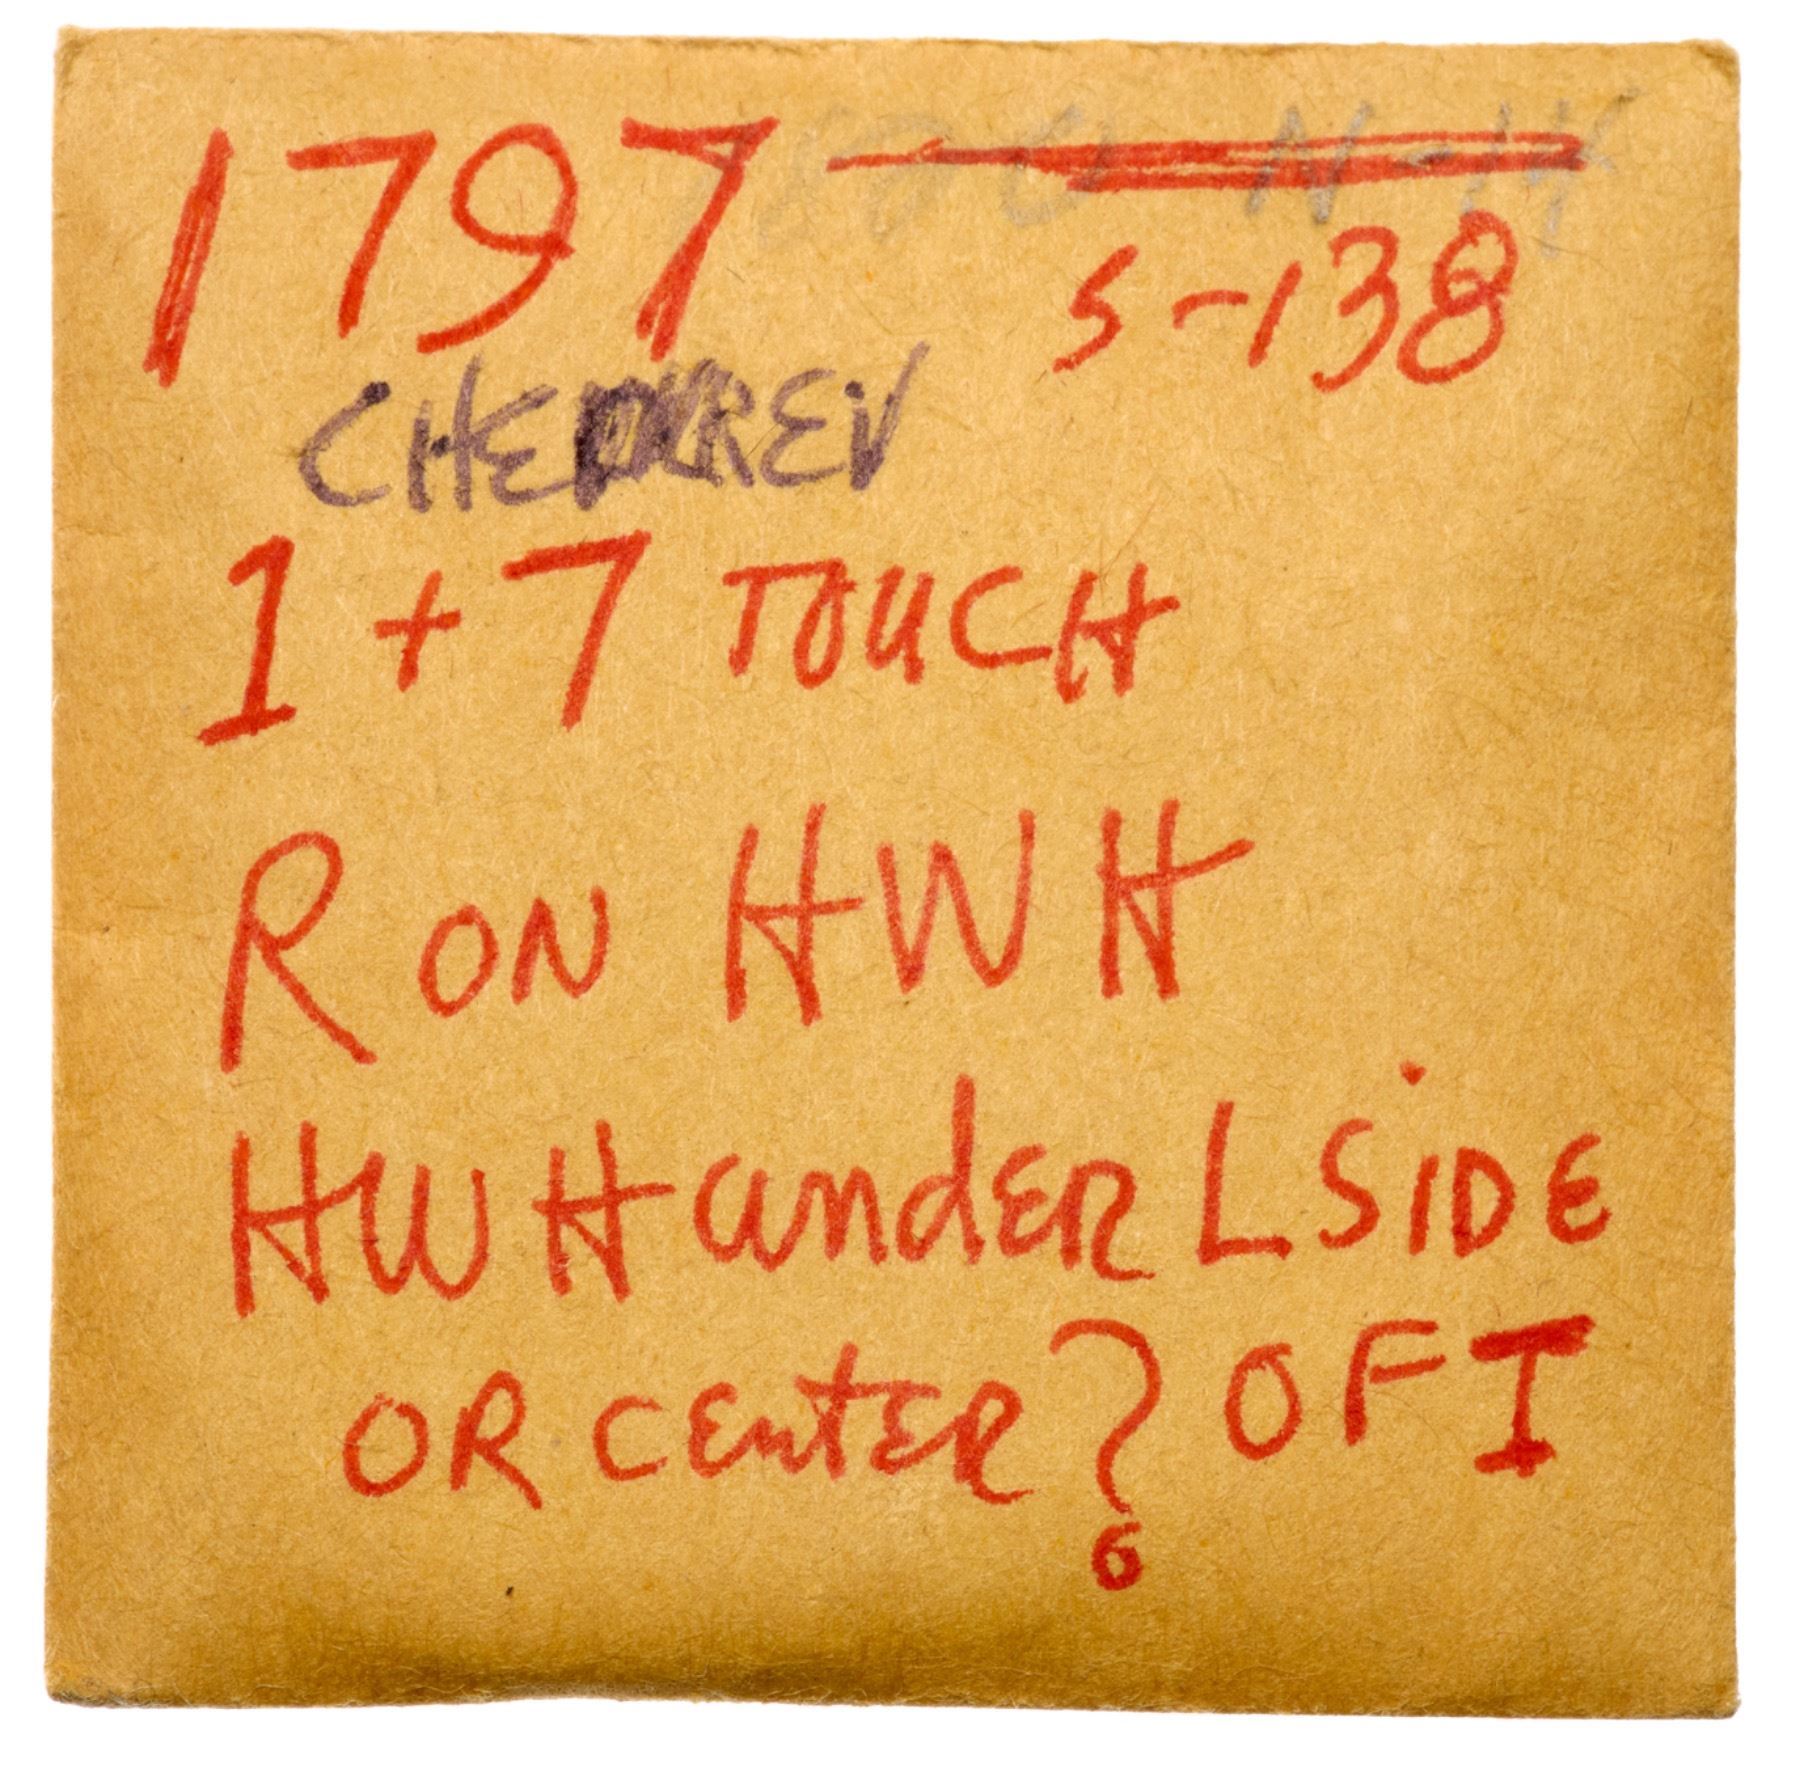 1797
S-138
1 + 7 TOUCH
R ON HWH
HWH under L SiDE
OR CENTER ? OF I
6